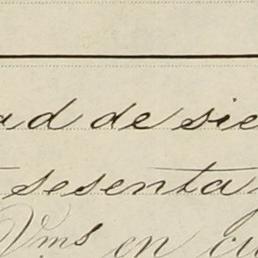 ad de sie
sesenta
Vms en cu